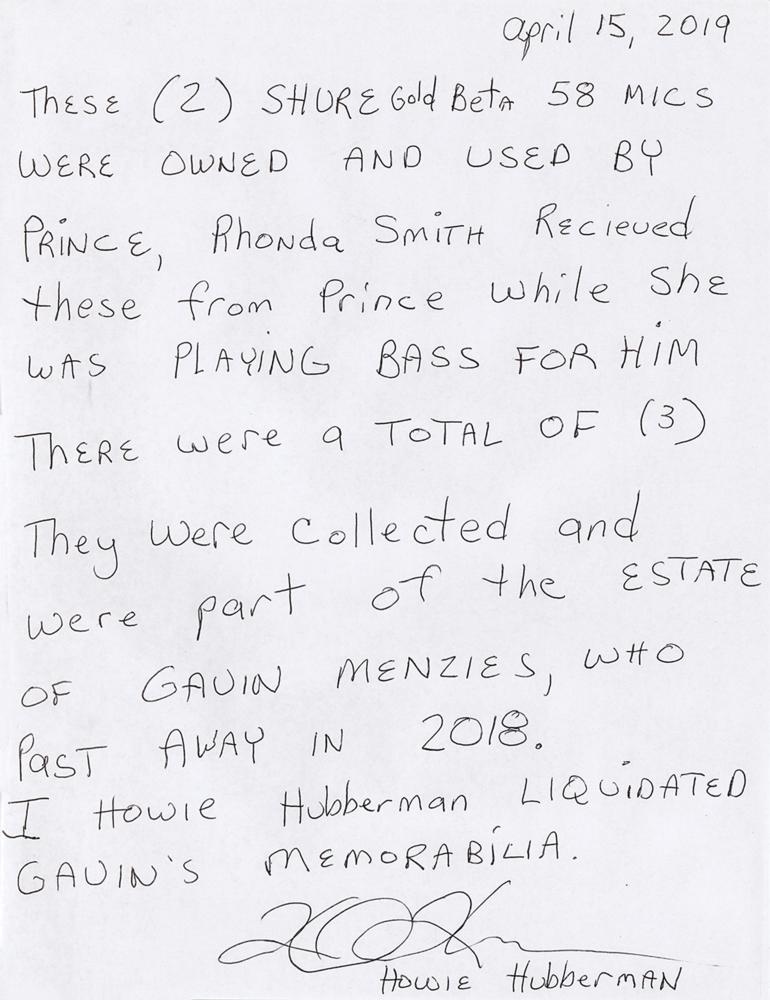 April 15, 2019
THESE (2) SHURE Gold BetA 58 MICS
WERE OWNED AND USED BY
PRINCE, Rhonda SMITH Recieved
these from Prince while SHE
WAS PLAYING BASS FOR HIM
THERE were a TOTAL OF (3)
They were collected and
were part of the ESTATE
OF GAVIN MENZIES, WHO
PAST AWAY IN 2018.
I HOWIE Hubberman LIQUIDATED
GAVIN'S MEMORABILIA.
HOWIE HubberMAN